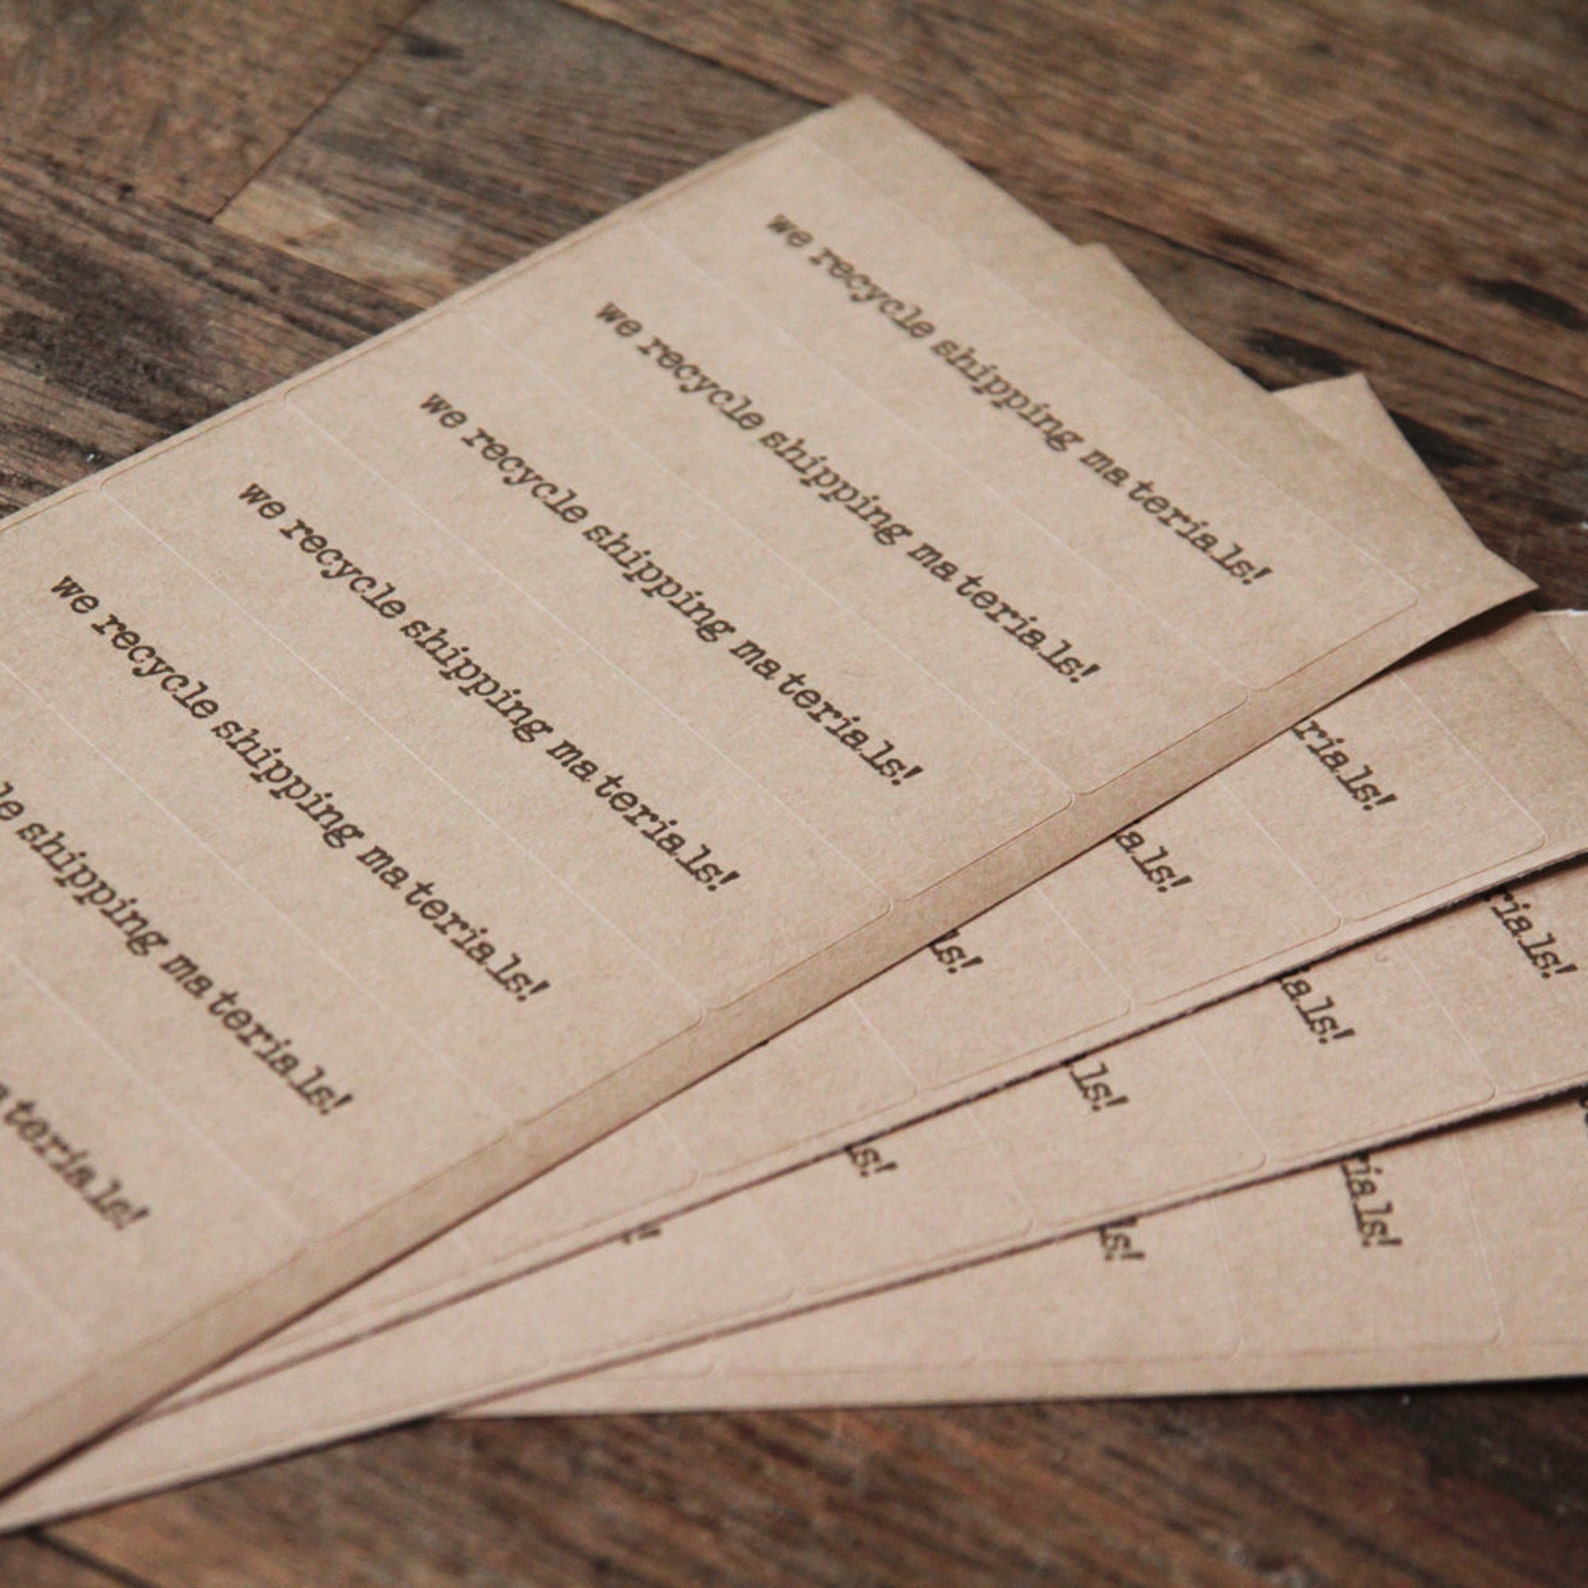 we recycle shipping materials!
we recycle shipping materials!
we recycle shipping materials!
we recycle shipping materials!
we recycle shipping materials!
le shipping materials!
aterials!
rials!
als!
ls!
rials!
ials!
ls!
s!
!
rials!
ls!